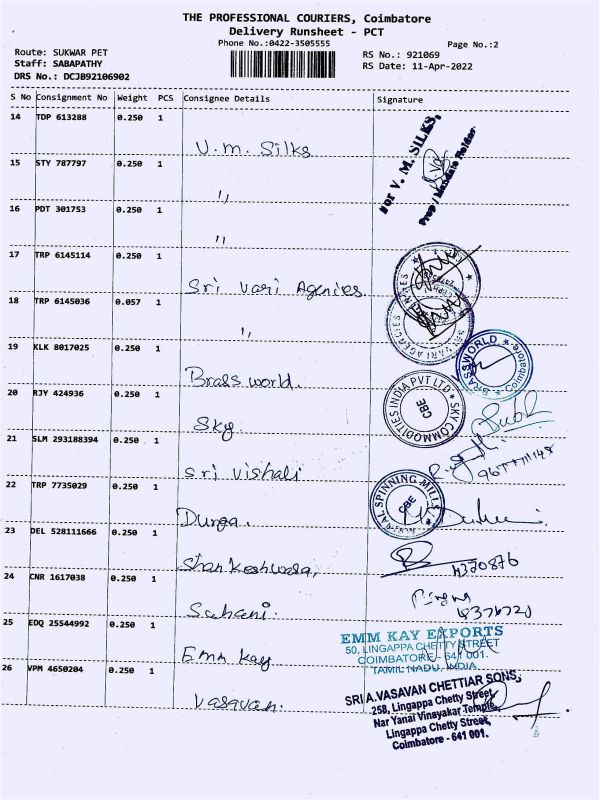 THE PROFESSIONAL COURIERS, Coimbatore
Delivery Runsheet - PCT
Phone No.:0422-3505555
Page No.:2
Route: SUKWAR PET
Staff: SABAPATHY
DRS No.: DCJB92106902
RS No.: 921069
RS Date: 11-Apr-2022
S No Consignment No Weight PCS Consignee Details Signature
14 TDP 613288 0.250 1 V.M. Silks
For V. M. SILKS,
Prop / Mandate Holder
15 STY 787797 0.250 1 ''
16 PDT 301753 0.250 1 ''
17 TRP 6145114 0.250 1 Sri Vari Agencies
18 TRP 6145036 0.057 1 ''
SRI VARI AGENCIES
19 KLK 8017025 1 Brass world.
BRASSWORLD
Coimbatore
20 RJY 424936 0.250 1 Sky
SKY COMMODITIES INDIA PVT LTD
CBE
21 SLM 293188394 0.250 1 Sri Vishali
22 TRP 7735029 0.250 1 Durga.
SPINNING MILLS
CBE
23 DEL 528111666 0.250 1 Shankeshwara,
24 CNR 1617038 0.250 1 Sahani.
25 EDQ 25544992 0.250 1 Emm Kay
EMM KAY EXPORTS
50, LINGAPPA CHETTY STREET
COIMBATORE - 641 001.
TAMIL NADU, INDIA
26 VPM 4650204 0.250 1 Vasavan.
SRI A.VASAVAN CHETTIAR SONS,
258, Lingappa Chetty Street,
Nar Yanai Vinayakar Temple,
Lingappa Chetty Street,
Coimbatore - 641 001.